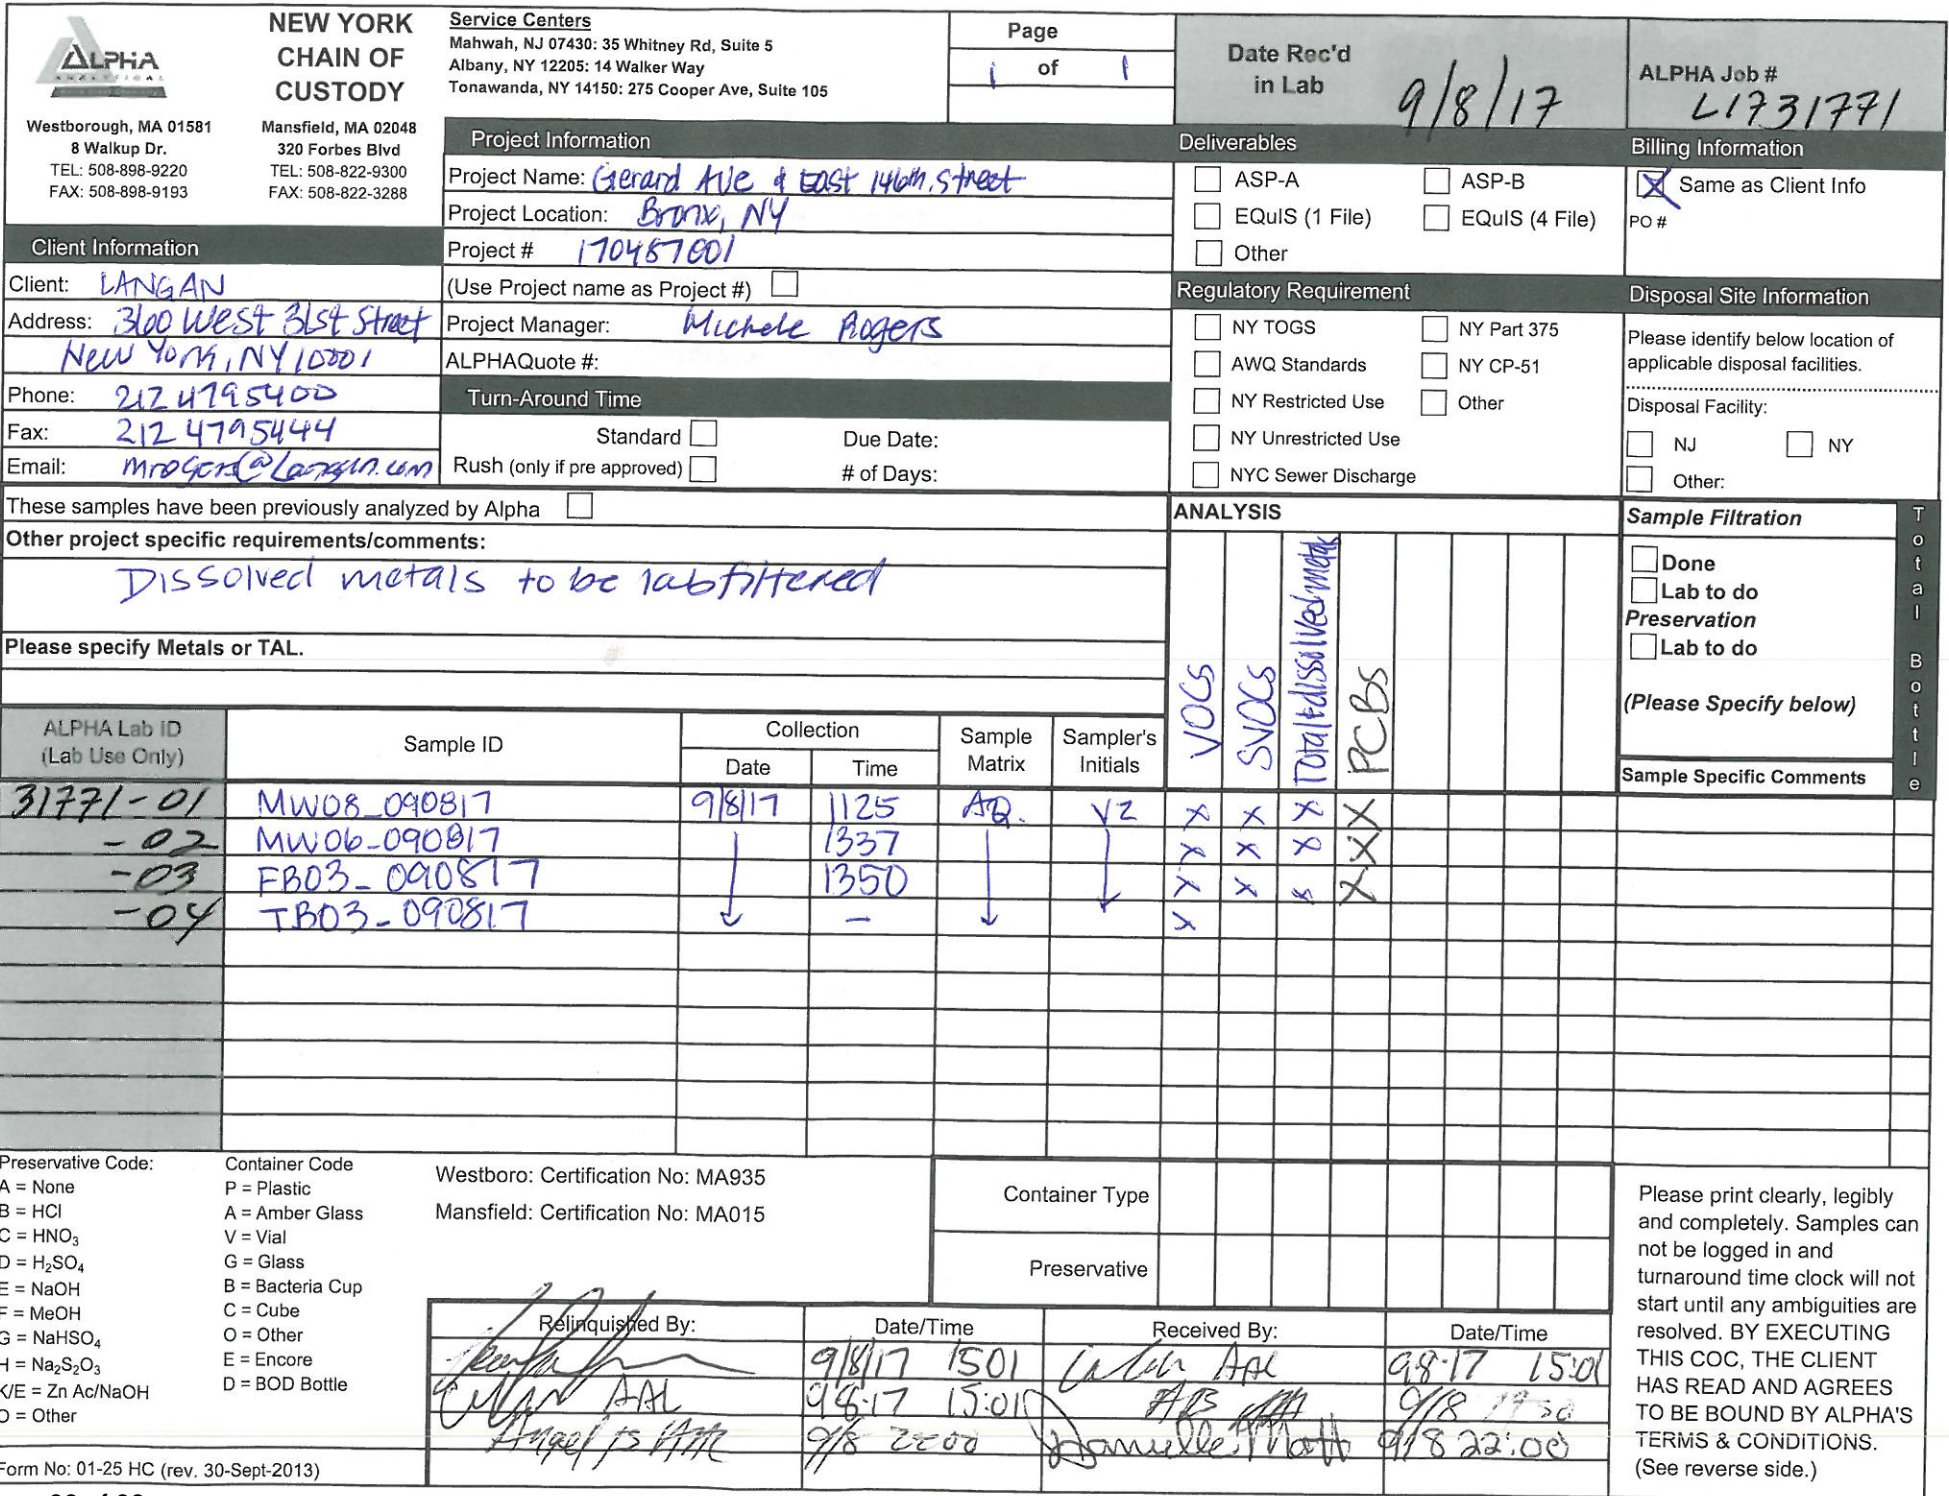 ALPHA
ANALYTICAL
NEW YORK
CHAIN OF
CUSTODY
Westborough, MA 01581
8 Walkup Dr.
TEL: 508-898-9220
FAX: 508-898-9193
Mansfield, MA 02048
320 Forbes Blvd
TEL: 508-822-9300
FAX: 508-822-3288
Service Centers
Mahwah, NJ 07430: 35 Whitney Rd, Suite 5
Albany, NY 12205: 14 Walker Way
Tonawanda, NY 14150: 275 Cooper Ave, Suite 105
Page
1 of 1
Date Rec'd
in Lab
9/8/17
ALPHA Job #
L1731771
Client Information
Client: LANGAN
Address: 360 West 31st Street
New York, NY 10001
Phone: 212 4795400
Fax: 212 4795444
Email: mrogers@Langan.com
Project Information
Project Name: Gerard Ave & East 146th Street
Project Location: Bronx, NY
Project # 170487001
(Use Project name as Project #)
Project Manager: Michele Rogers
ALPHAQuote #:
Turn-Around Time
Standard Due Date:
Rush (only if pre approved) # of Days:
Deliverables
ASP-A ASP-B
EQuIS (1 File) EQuIS (4 File)
Other
Regulatory Requirement
NY TOGS NY Part 375
AWQ Standards NY CP-51
NY Restricted Use Other
NY Unrestricted Use
NYC Sewer Discharge
Billing Information
X Same as Client Info
PO #
Disposal Site Information
Please identify below location of
applicable disposal facilities.
Disposal Facility:
NJ NY
Other:
These samples have been previously analyzed by Alpha
Other project specific requirements/comments:
Dissolved metals to be lab filtered
Please specify Metals or TAL.
ANALYSIS
VOCs
SVOCs
Total & dissolved metals
PCBs
Sample Filtration
Done
Lab to do
Preservation
Lab to do
(Please Specify below)
Total Bottle
ALPHA Lab ID
(Lab Use Only)
Sample ID
Collection
Date Time
Sample
Matrix
Sampler's
Initials
Sample Specific Comments
31771-01 MW08_090817 9/8/17 1125 AQ. VZ X X X X
-02 MW06-090817 1337 X X X X
-03 FB03_090817 1350 X X X X
-04 TB03_090817 - X
Preservative Code:
A = None
B = HCl
C = HNO3
D = H2SO4
E = NaOH
F = MeOH
G = NaHSO4
H = Na2S2O3
K/E = Zn Ac/NaOH
O = Other
Container Code
P = Plastic
A = Amber Glass
V = Vial
G = Glass
B = Bacteria Cup
C = Cube
O = Other
E = Encore
D = BOD Bottle
Westboro: Certification No: MA935
Mansfield: Certification No: MA015
Container Type
Preservative
Relinquished By: Date/Time Received By: Date/Time
9/8/17 1501 AAL 9-8-17 15:01
AAL 9-8-17 15:01 9/8
9/8 2200 Danielle 9/8 22:00
Please print clearly, legibly
and completely. Samples can
not be logged in and
turnaround time clock will not
start until any ambiguities are
resolved. BY EXECUTING
THIS COC, THE CLIENT
HAS READ AND AGREES
TO BE BOUND BY ALPHA'S
TERMS & CONDITIONS.
(See reverse side.)
Form No: 01-25 HC (rev. 30-Sept-2013)